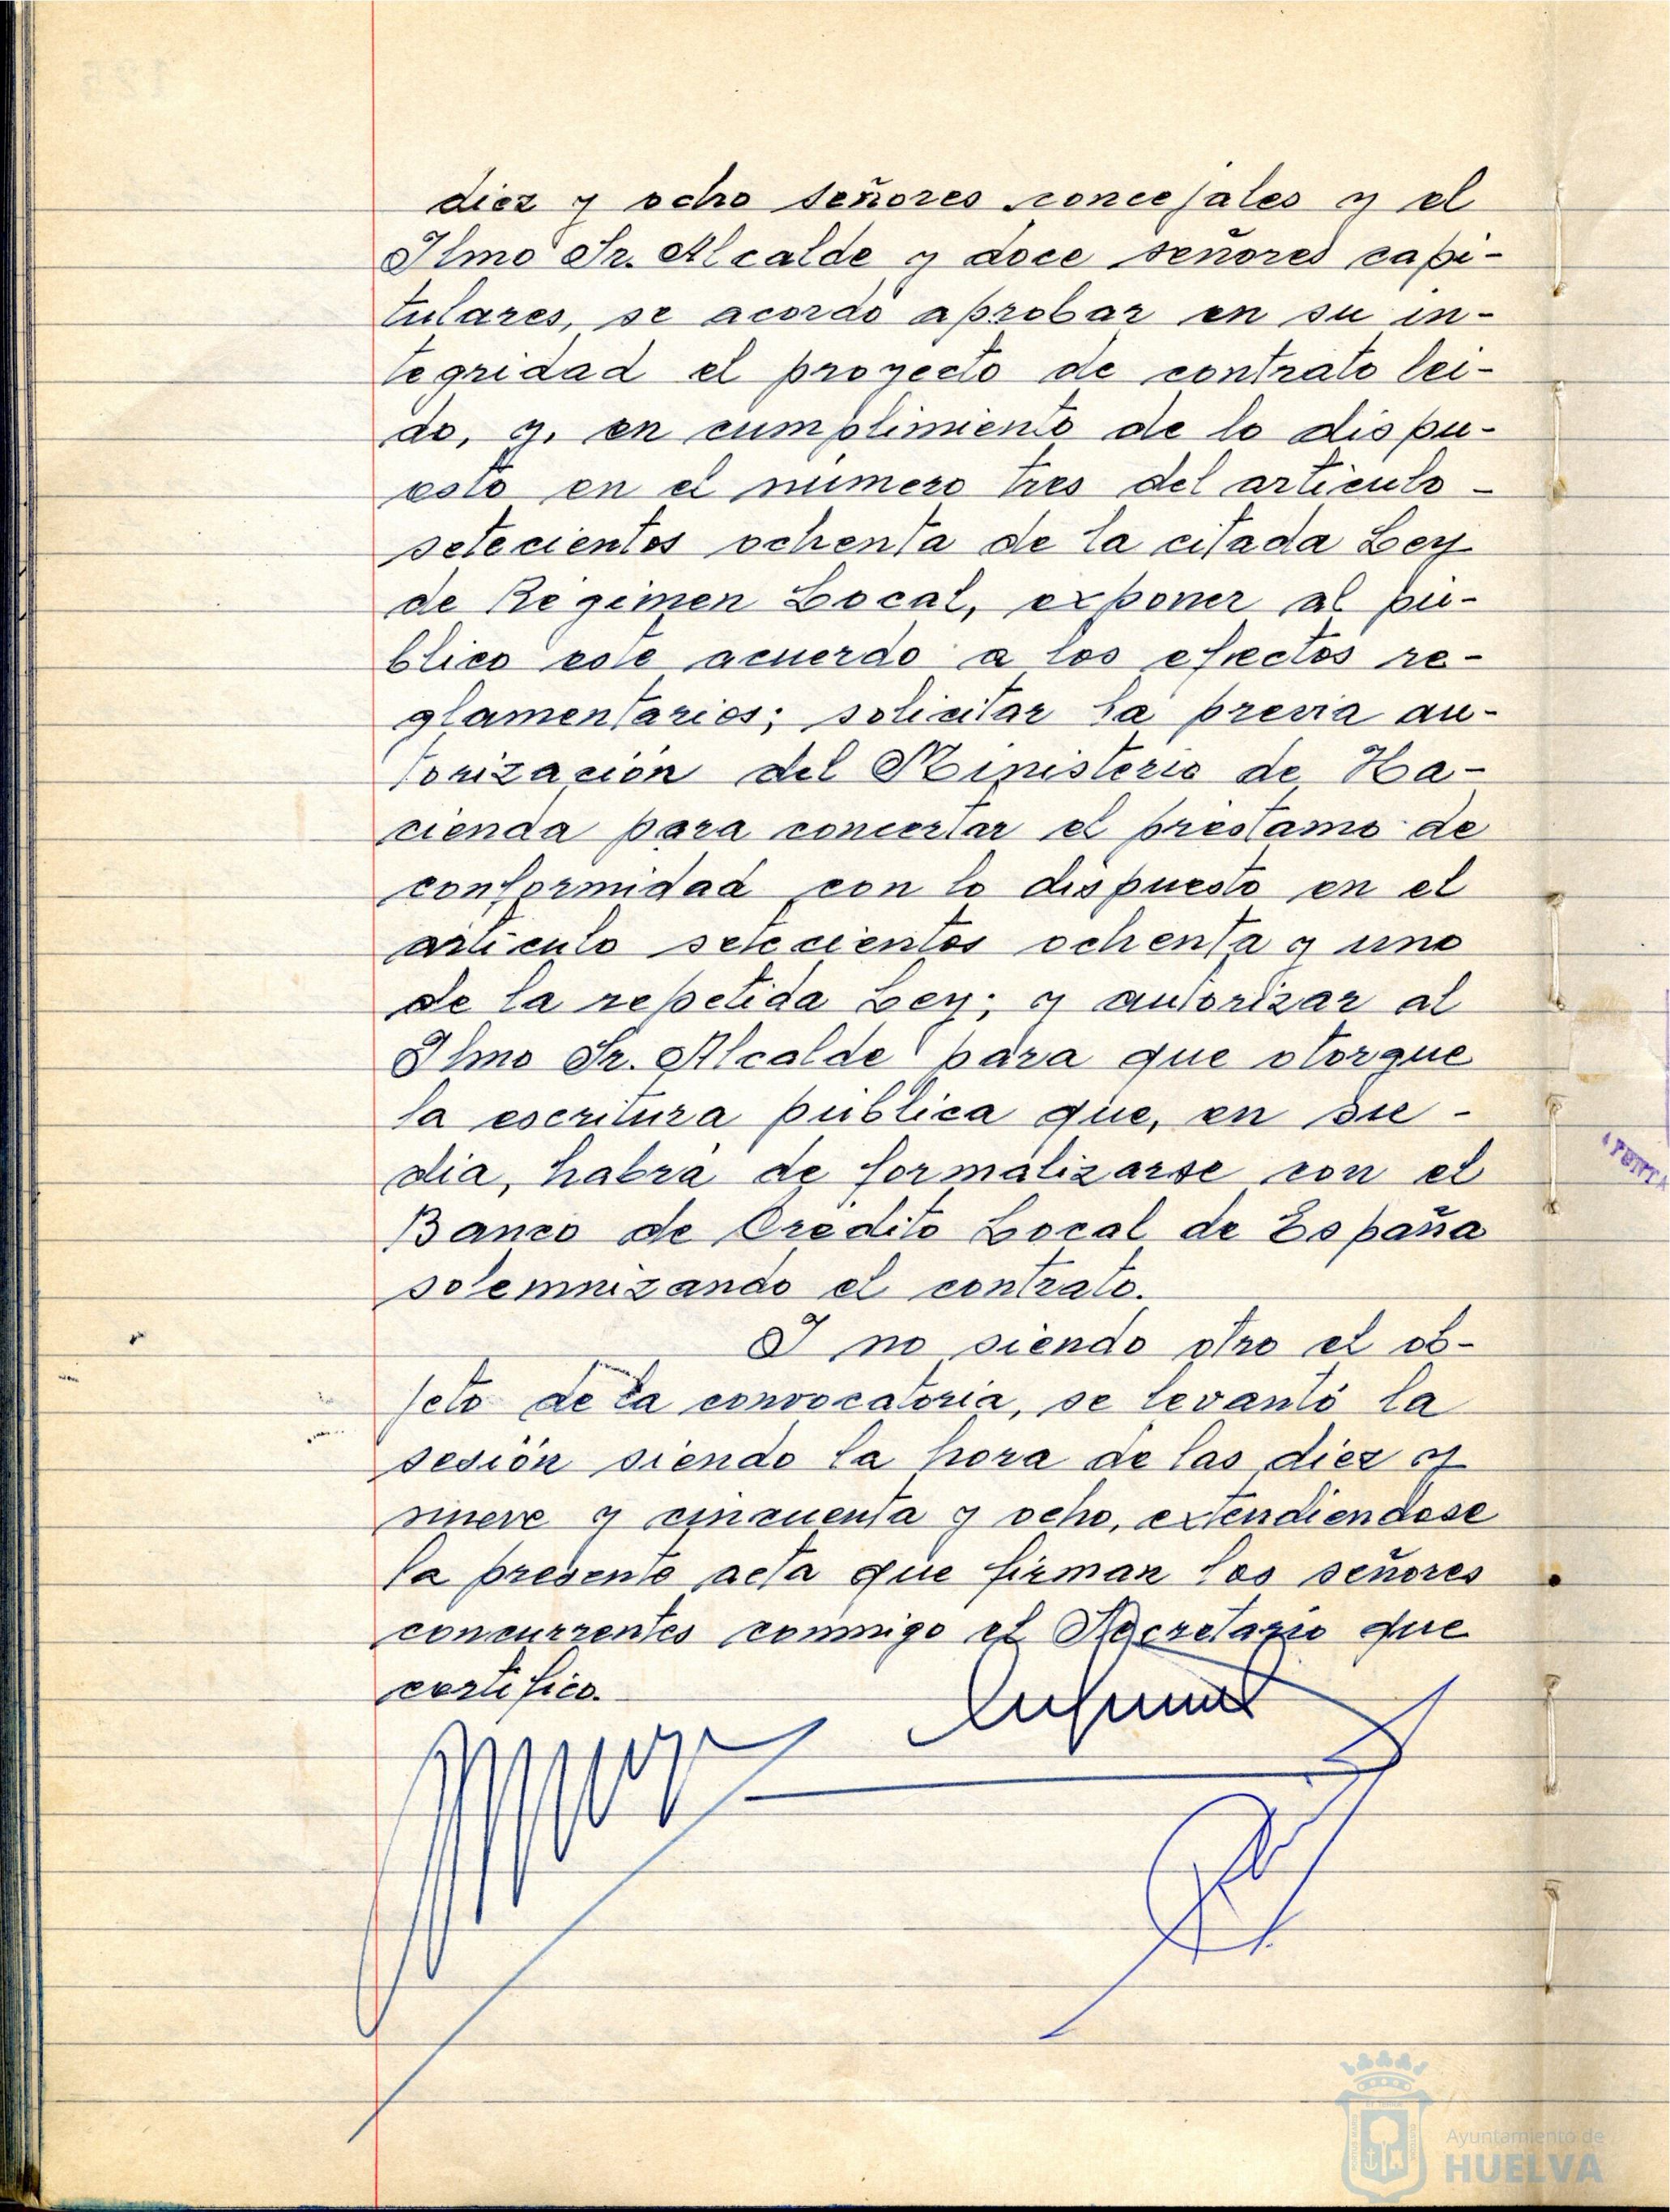 diez y ocho señores concejales y el
Ilmo Sr. Alcalde y doce señores capi-
tulares, se acordó aprobar en su in-
tegridad el proyecto de contrato lei-
do, y, en cumplimiento de lo dispu-
esto en el número tres del artículo -
setecientos ochenta de la citada Ley
de Régimen Local, exponer al pú-
blico este acuerdo a los efectos re-
glamentarios; solicitar la previa au-
torización del Ministerio de Ha-
cienda para concertar el préstamo de
conformidad con lo dispuesto en el
artículo setecientos ochenta y uno
de la repetida Ley; y autorizar al
Ilmo Sr. Alcalde para que otorgue
la escritura pública que, en su -
dia, habrá de formalizarse con el
Banco de Crédito Local de España
solemnizando el contrato.
Y no siendo otro el ob-
jeto de la convocatoria, se levantó la
sesión siendo la hora de las diez y
nueve y cincuenta y ocho, extendiendose
la presente acta que firman los señores
concurrentes conmigo el Secretario que
certifico.
Ayuntamiento de
HUELVA